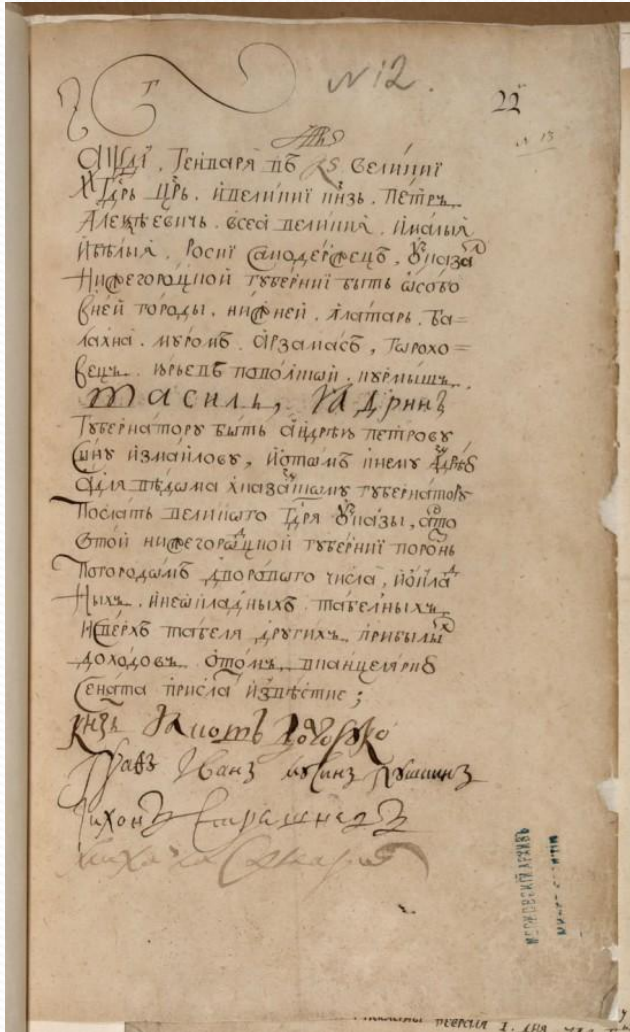 № 12.
22
№ 13
҂АѰДІ, Генваря въ КЅ Великиі
Гдрь црь. и великиі кнзь. Петръ
Алеѯѣевичь. всеа великия. и малыя
и бѣлыя. Росиі Самодержецъ, Указал
Нижегороцкой губерниі быть ѡсобо
в ней городы. нижней. алатарь. ба=
лахна. муромъ. арзамасъ, горохо=
вецъ. юрьевъ поволской. курмышъ.
василь, Ядринъ
Губернатору быть андрѣю петрову
сыну измаилову, и о томъ к нему
а для вѣдома к казанскому губернатору
Послать великого Гдря Указы, а что
с той нижегороцкой губерниі порознь
по городомъ дворового числа, и оклад
ныхъ. и неокладныхъ табелныхъ.
и сверхъ табеля других прибылых
доходовъ. о томъ в канцелярию
Сената присла извѣстие;
Кнзь Яковъ Долгоруко
Графъ Иванъ Мусинъ Пушкинъ
Тихонъ Стрешневъ
МОСКОВСКІЙ АРХИВЪ